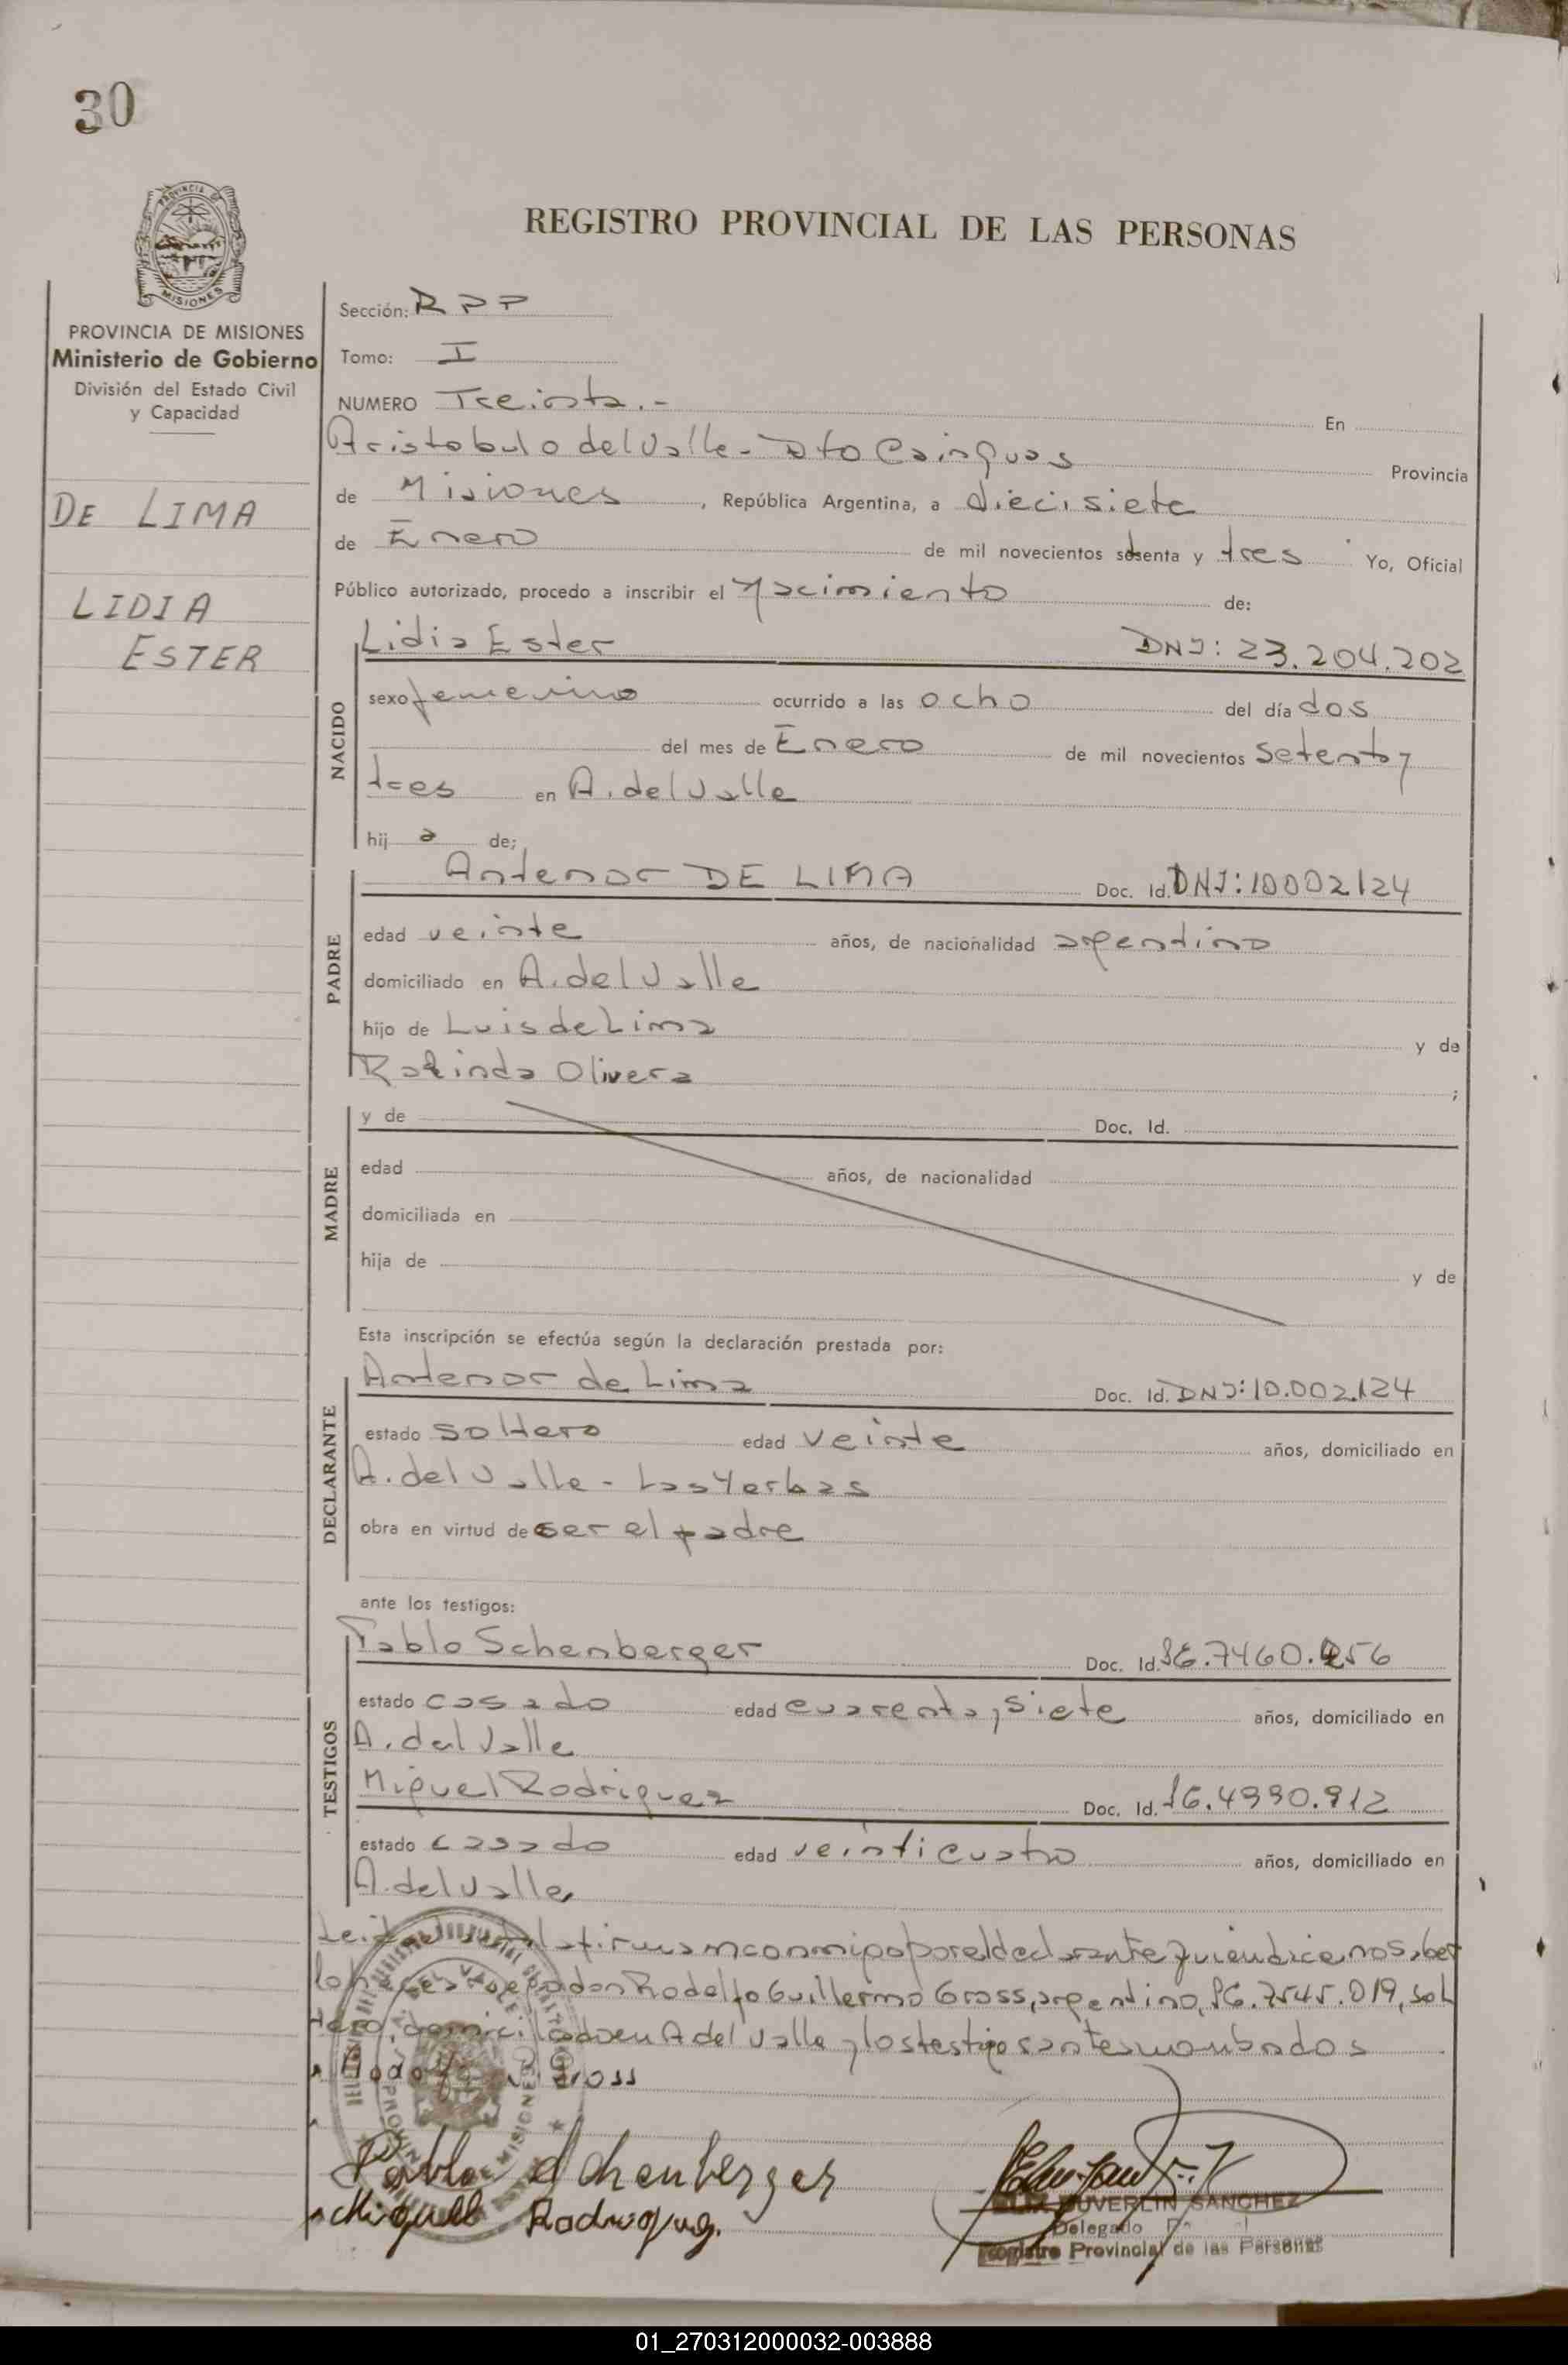 30
PROVINCIA DE MISIONES
Ministerio de Gobierno
División del Estado Civil
y Capacidad
DE LIMA
LIDIA
ESTER
REGISTRO PROVINCIAL DE LAS PERSONAS
Sección: RPP
Tomo: I
NUMERO Treinta.- En
Aristobulo del Valle - Dto Cainguas Provincia
de Misiones, República Argentina, a diecisiete
de Enero de mil novecientos setenta y tres Yo, Oficial
Público autorizado, procedo a inscribir el Nacimiento de:
NACIDO
Lidia Ester DNI: 23.204.202
sexo femenino ocurrido a las ocho del día dos
del mes de Enero de mil novecientos setenta y
tres en A. del Valle
hij a de;
PADRE
Antenor DE LIMA Doc. Id. DNI: 10002124
edad veinte años, de nacionalidad argentino
domiciliado en A. del Valle
hijo de Luis de Lima y de
Olivera ;
MADRE
y de Doc. Id.
edad años, de nacionalidad
domiciliada en
hija de y de
Esta inscripción se efectúa según la declaración prestada por:
DECLARANTE
Antenor de Lima Doc. Id. DNI: 10.002.124
estado soltero edad veinte años, domiciliado en
A. del Valle - Las Yerbas
obra en virtud de ser el padre
ante los testigos:
TESTIGOS
Pablo Schenberger Doc. Id. 7460.
estado casado edad cuarenta y siete años, domiciliado en
A. del Valle
Miguel Rodriguez Doc. Id.
estado casado edad veinticuatro años, domiciliado en
A. del Valle
la firman conmigo por el declarante quien dice no saber
lo hace a ruego don Rodolfo Guillermo Gross, argentino, 7.545.019, sol
tero, domiciliado en A del Valle y los testigos antes nombrados
Gross
Pablo Schenberger
Miguel Rodriguez
DUVERLIN SANCHEZ
Delegado
Registro Provincial de las Personas
01_270312000032-003888